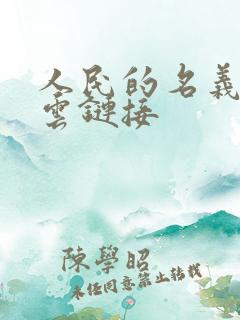 人民的名義
雲鏈接
陳學昭
未任同意禁止转载